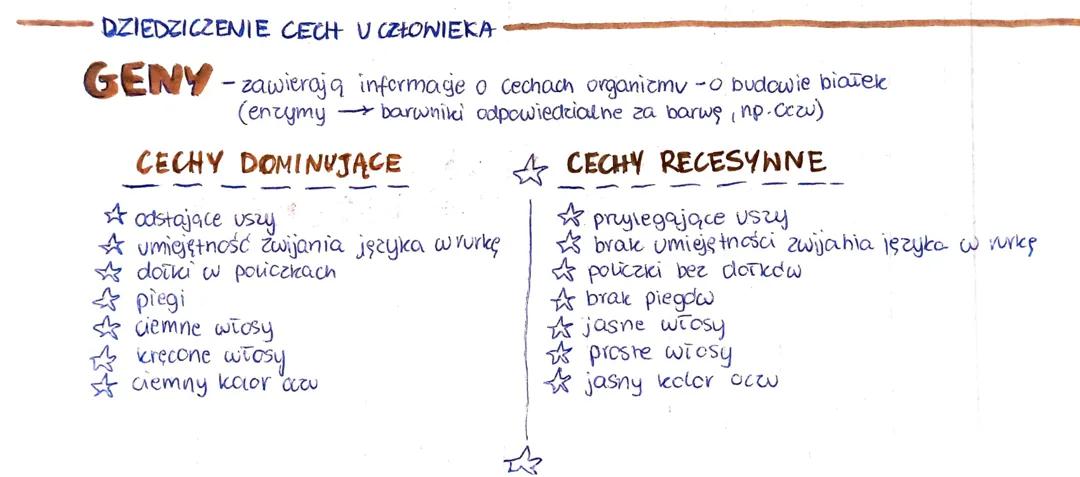 DZIEDZICZENIE CECH U CZŁOWIEKA
GENY - zawierają informacje o cechach organizmu - o budowie białek
(enzymy → barwniki odpowiedzialne za barwę, np. oczu)
CECHY DOMINUJĄCE
☆ odstające uszy
☆ umiejętność zwijania języka w rurkę
☆ dołki w policzkach
☆ piegi
☆ ciemne włosy
☆ kręcone włosy
☆ ciemny kolor oczu
☆ CECHY RECESYWNE
☆ przylegające uszy
☆ brak umiejętności zwijania języka w rurkę
☆ policzki bez dołków
☆ brak piegów
☆ jasne włosy
☆ proste włosy
☆ jasny kolor oczu